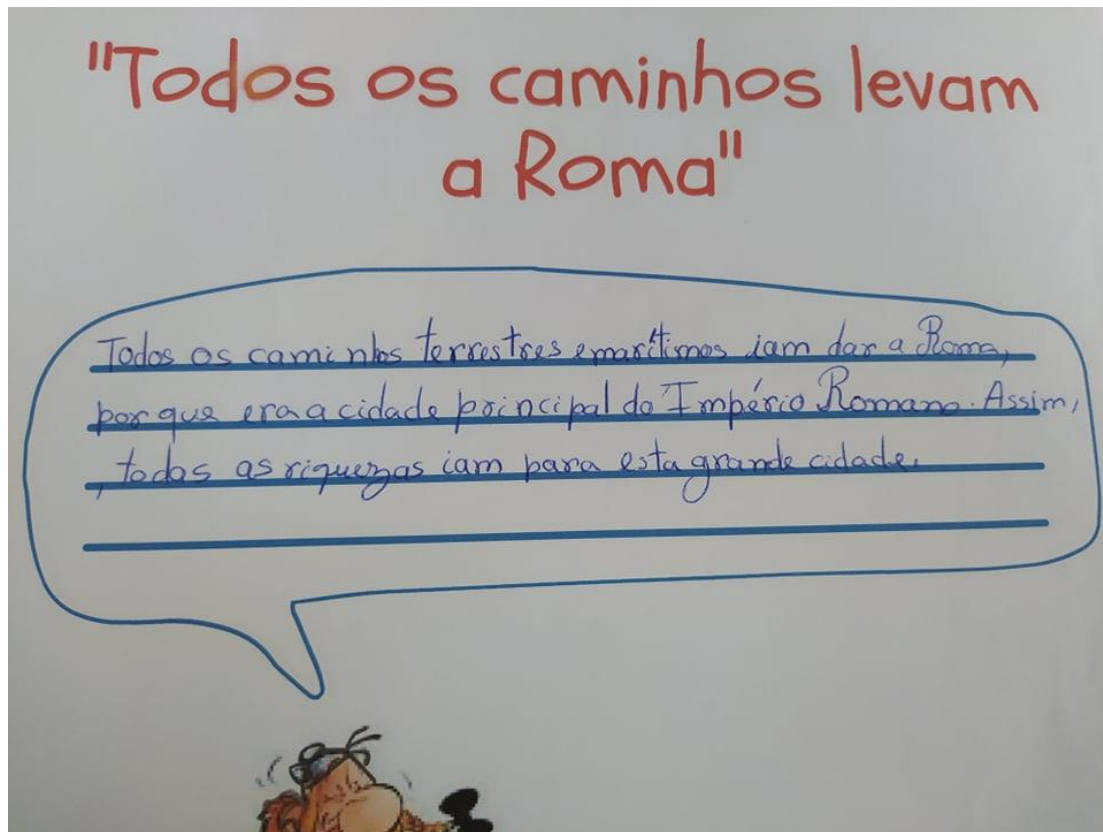 "Todos os caminhos levam
a Roma"
Todos os caminhos terrestres e marítimos iam dar a Roma,
por que era a cidade principal do Império Romano. Assim,
, todas as riquezas iam para esta grande cidade.